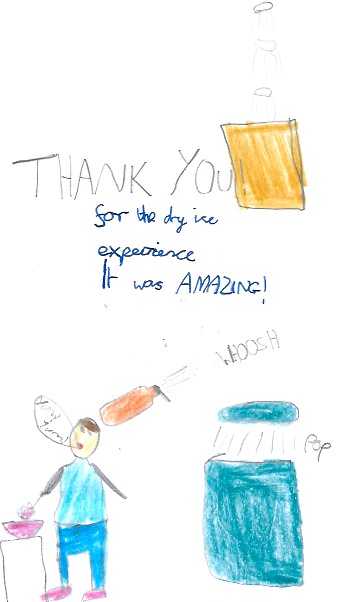 THANK YOU!
for the dry ice
experience
It was AMAZING!
WHOOSH
POP